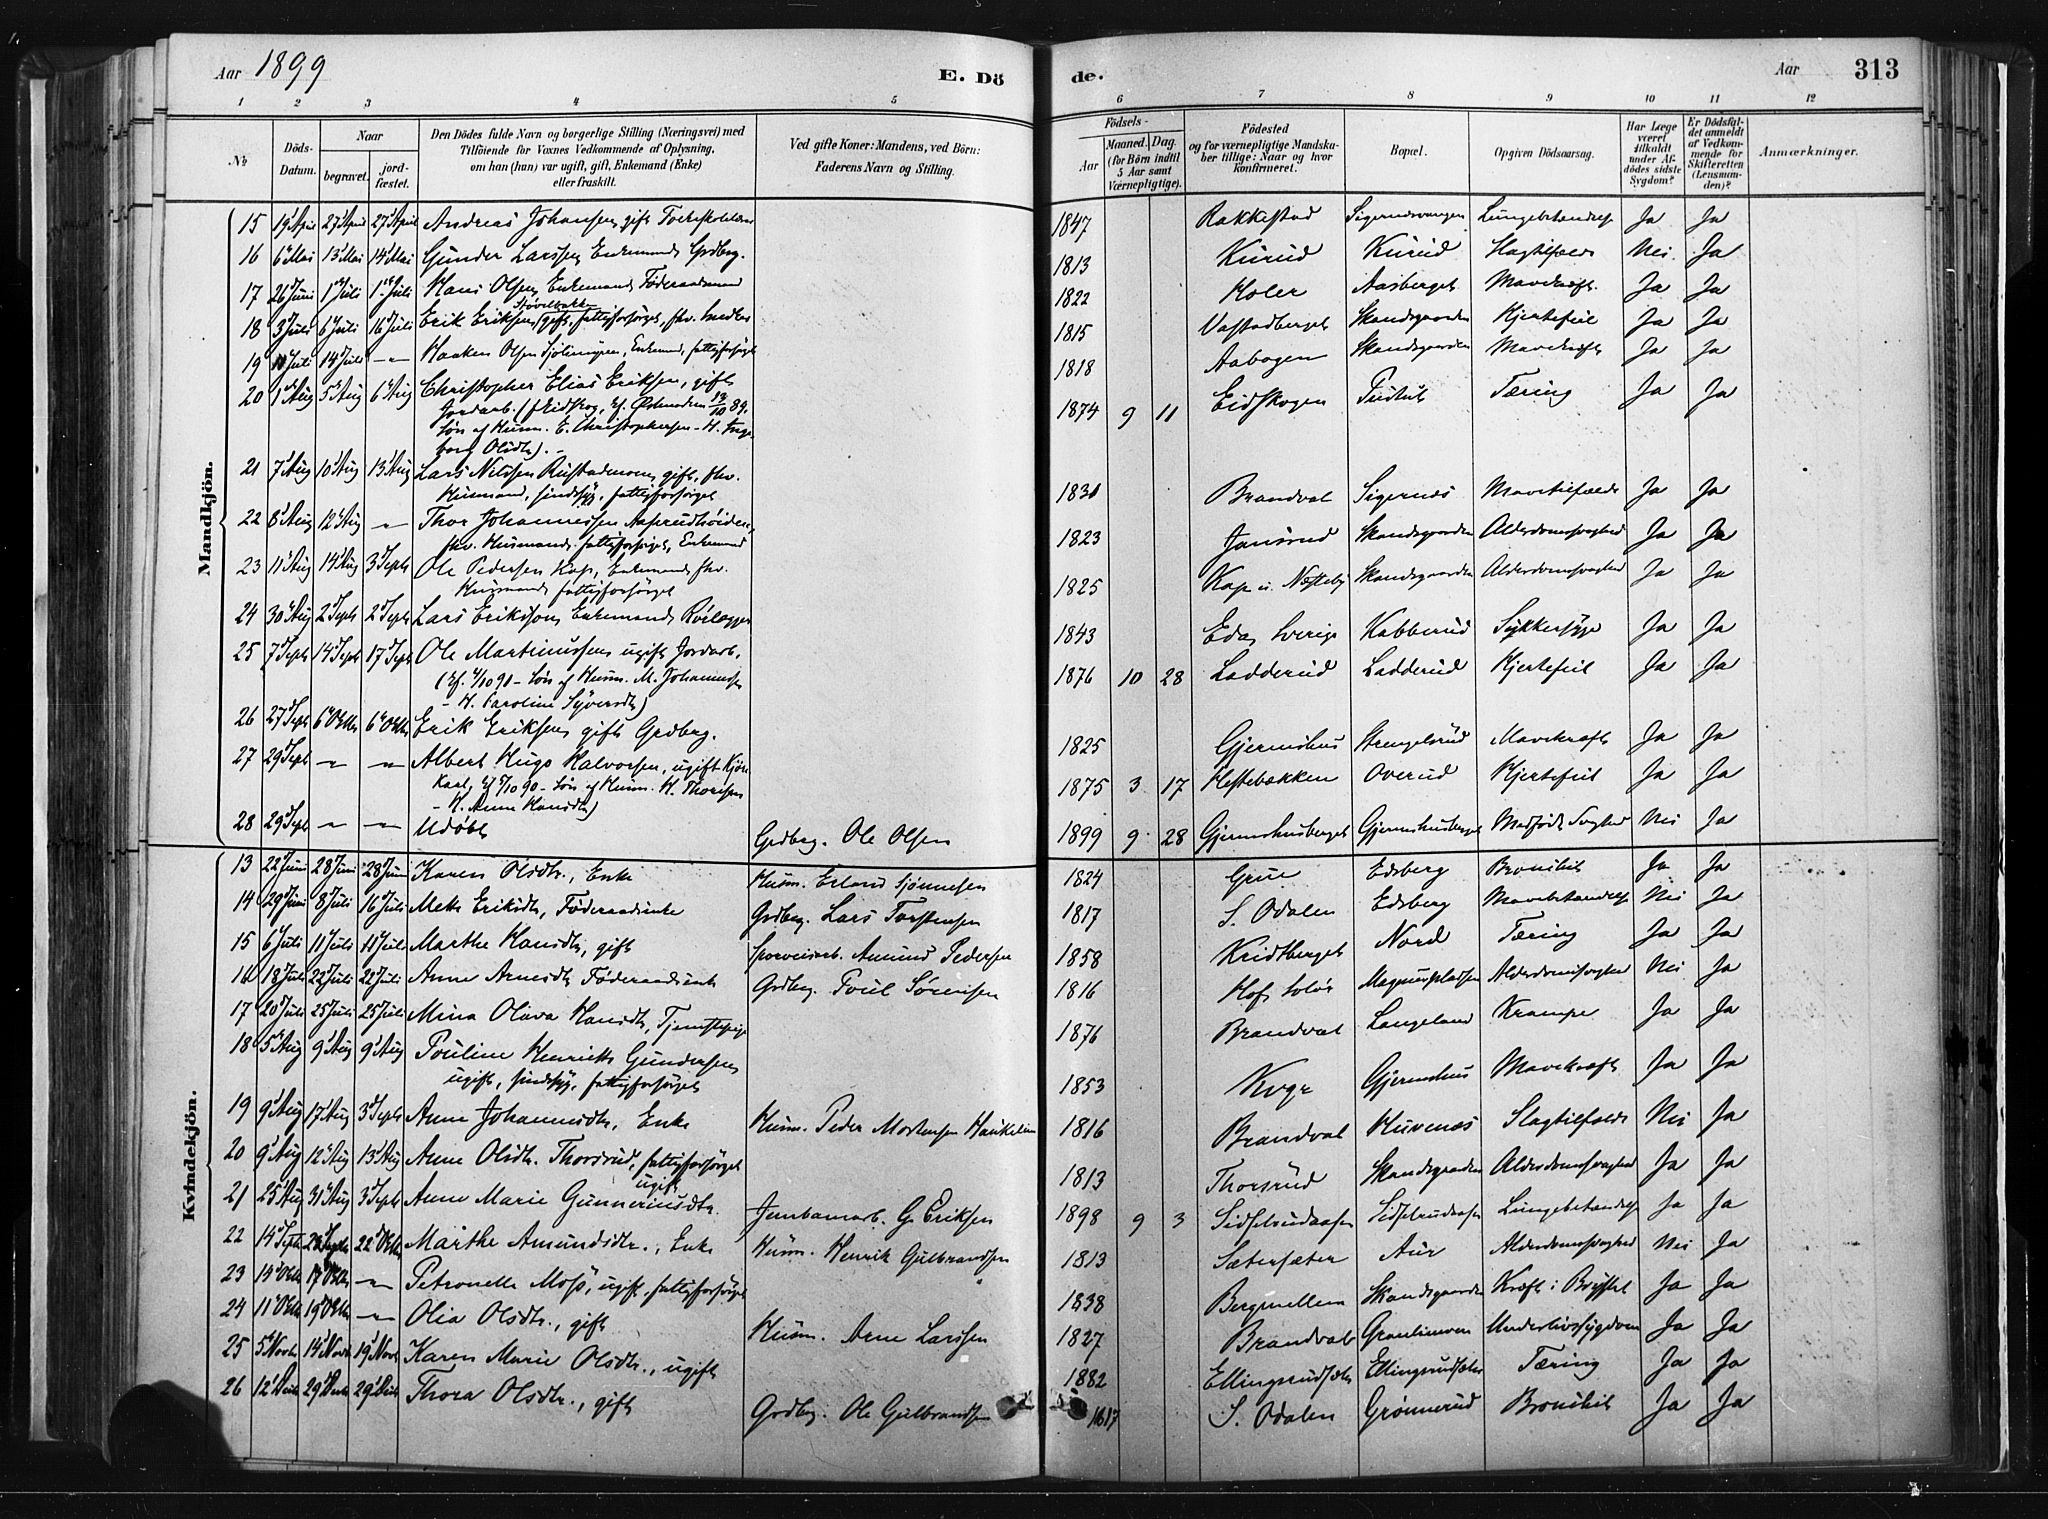 Aar 1899 E. Dö de. Aar 313
1 2 3 4 5 6 7 8 9 10 11 12
No Döds-Datum. Naar begravet. jordfæstet. Den Dödes fulde Navn og borgerlige Stilling (Næringsvei) med Tilföiende for Voxnes Vedkommende af Oplysning, om han (hun) var ugift, gift, Enkemand (Enke) eller fraskilt. Ved gifte Koner: Mandens, ved Börn: Faderens Navn og Stilling. Födsels- Aar Maaned. Dag. (for Börn indtil 5 Aar samt Værnepligtige). Födested og for værnepligtige Mandskaber tillige: Naar og hvor konfirmeret. Bopæl. Opgiven Dödsaarsag. Har Læge været tilkaldt under Afdödes sidste Sygdom? Er Dödsfaldet anmeldt af Vedkommende for Skifteretten (Lensmanden)? Anmærkninger.
Mandkjön.
15 19 April 27 April 27 April Andreas Johansen, gift 1847 Rakkestad Lungebetændelse Ja Ja
16 6 Mai 13 Mai 14 Mai Gunder Larssen, Enkemand, Grdbrg. 1813 Kurud Kurud Slagtilfælde Nei Ja
17 26 Juni 1 Juli 1 Juli Hans Olsen, Enkemand, Föderaadsmand 1822 Holer Aasberget Mavekræft Ja Ja
18 3 Juli 6 Juli 16 Juli Erik Eriksen Støvelbakke gift, fattigforsörget, fhv. 1815 Vastadberget Skandsgaarden Hjertefeil Ja Ja
19 11 Juli 14 Juli -"- Haaken Olsen Sjölimyren, Enkemd, fattigforsörget 1818 Aabogen Skandsgaarden Mavekræft Ja Ja
20 1 Aug 5 Aug 6 Aug Christopher Elias Eriksen, gift 1874 9 11 Eidskogen Tæring Ja Ja
Jordarb. (f. Eidskog, kf. Østmarken 13/10 89.
Sön af Husm. E. Christophersen - H. Inge
borg Olsdtr). -
21 7 Aug 10 Aug 13 Aug Lars Nilssen Rustadmoen, gift, fhv. 1831 Brandval Sigernæs Mavetilfælde Ja Ja
Husmand, sindssyg, fattigforsörget
22 8 Aug 12 Aug -"- Thor Johannessen Aaprudhöiden, 1823 Jansrud Skandsgaarden Alderdomssvaghed Ja Ja
fhv. Husmand, fattigforsörget, Enkemand
23 11 Aug 14 Aug 3 Septb Ole Pedersen Kap, Enkemand, fhv. 1825 Kap u. Næsteby Skandsgaarden Alderdomssvaghed Ja Ja
Husmand, fattigforsörget
24 30 Aug 2 Septb 2 Septb Lars Erikssen, Enkemand, Rörlægger 1843 Eda, Sverige Kabberud Sukkersyge Ja Ja
25 7 Septb 14 Septb 17 Septb Ole Martinussen, ugift, Jordarb. 1876 10 28 Ladderud Ladderud Hjertefeil Ja Ja
(kf. 4/10 91 - Sön af Husm. M. Johannessen
- H. Karoline Syversdtr)
26 27 Septb 6 Oktb 6 Oktb Erik Eriksen, gift, Grdbrg. 1825 Gjermshus Strengelsrud Mavekræft Ja Ja
27 29 Septb -"- -"- Albert Hugo Halvorsen, ugift Kjöre 1875 3 17 Hestebækken Overud Hjertefeil Ja Ja
karl, kf 5/10 90 - Sön af Husm. H. Thoresen
- H. Anne Hansdtr)
28 29 Septb -"- -"- Udöbt Grdbrg. Ole Olsen 1899 9 28 Gjermshusberget Gjermshusberget Medfödt Svaghed Nei Ja
Kvindekjön.
13 22 Juni 28 Juni 28 Juni Karen Olsdtr., Enke Husm. Erland Sjönnesen 1824 Grue Edsberg Bronchit Ja Ja
14 29 Juni 8 Juli 16 Juli Mette Eriksdtr, Föderaadsenke Grdbrg. Lars Torstensen 1817 S. Odalen Edsberg Mavebetændelse Nei Ja
15 6 Juli 11 Juli 11 Juli Marthe Hansdtr, gift Sporveisarb. Amund Pedersen 1858 Kridtberget Nord Tæring Ja Ja
16 18 Juli 22 Juli 22 Juli Anne Arnesdtr, Föderaadsenke Grdbrg. Poul Sörensen 1816 Hof, Solör Magnusplassen Alderdomssvaghed Nei Ja
17 20 Juli 25 Juli 25 Juli Mina Olava Hansdtr, Tjenstepige 1876 Brandval Langeland Krampe Ja Ja
18 5 Aug 9 Aug 9 Aug Pouline Henriette Gundersen, 1853 Gjermshus Mavekræft Ja Ja
ugift, sindssyg, fattigforsörget
19 9 Aug 17 Aug 3 Septb Anne Johannesdtr, Enke Husm. Peder Mortensen 1816 Brandval Huvenæs Slagtilfælde Nei Ja
20 9 Aug 12 Aug 13 Aug Anne Olsdtr. Thorsrud, fattigforsörget 1813 Thorsrud Skandsgaarden Alderdomssvaghed Ja Ja
ugift
21 25 Aug 31 Aug 3 Septb Anne Marie Gunneriusdtr. Jernbanearb. G. Eriksen 1898 9 3 Sidselrudaasen Sidselrudaasen Lungebetændelse Ja Ja
22 14 Septb 22 Oktb Marthe Amundsdtr., Enke Husm. Henrik Gulbrandsen 1813 Sætersæter Aur Alderdomssvaghed Nei Ja
23 14 Oktb 17 Oktb -"- Petronelle Moss, ugift, fattigforsörget 1838 Skandsgaarden Kræft i Brystet Ja Ja
24 11 Oktb 19 Oktb -"- Olia Olsdtr., gift Husm. Arne Larssen 1827 Brandval Underlivssygdom Ja Ja
25 5 Novb 14 Novb 19 Novb Karen Marie Olsdtr., ugift 1882 Ellingsrudsæter Ellingsrudsæter Tæring Ja Ja
26 12 Decb 29 Decb 29 Decb Thora Olsdtr., gift Grdbrg. Ole Gulbrandsen 1817 S. Odalen Grönnerud Bronchit Ja Ja